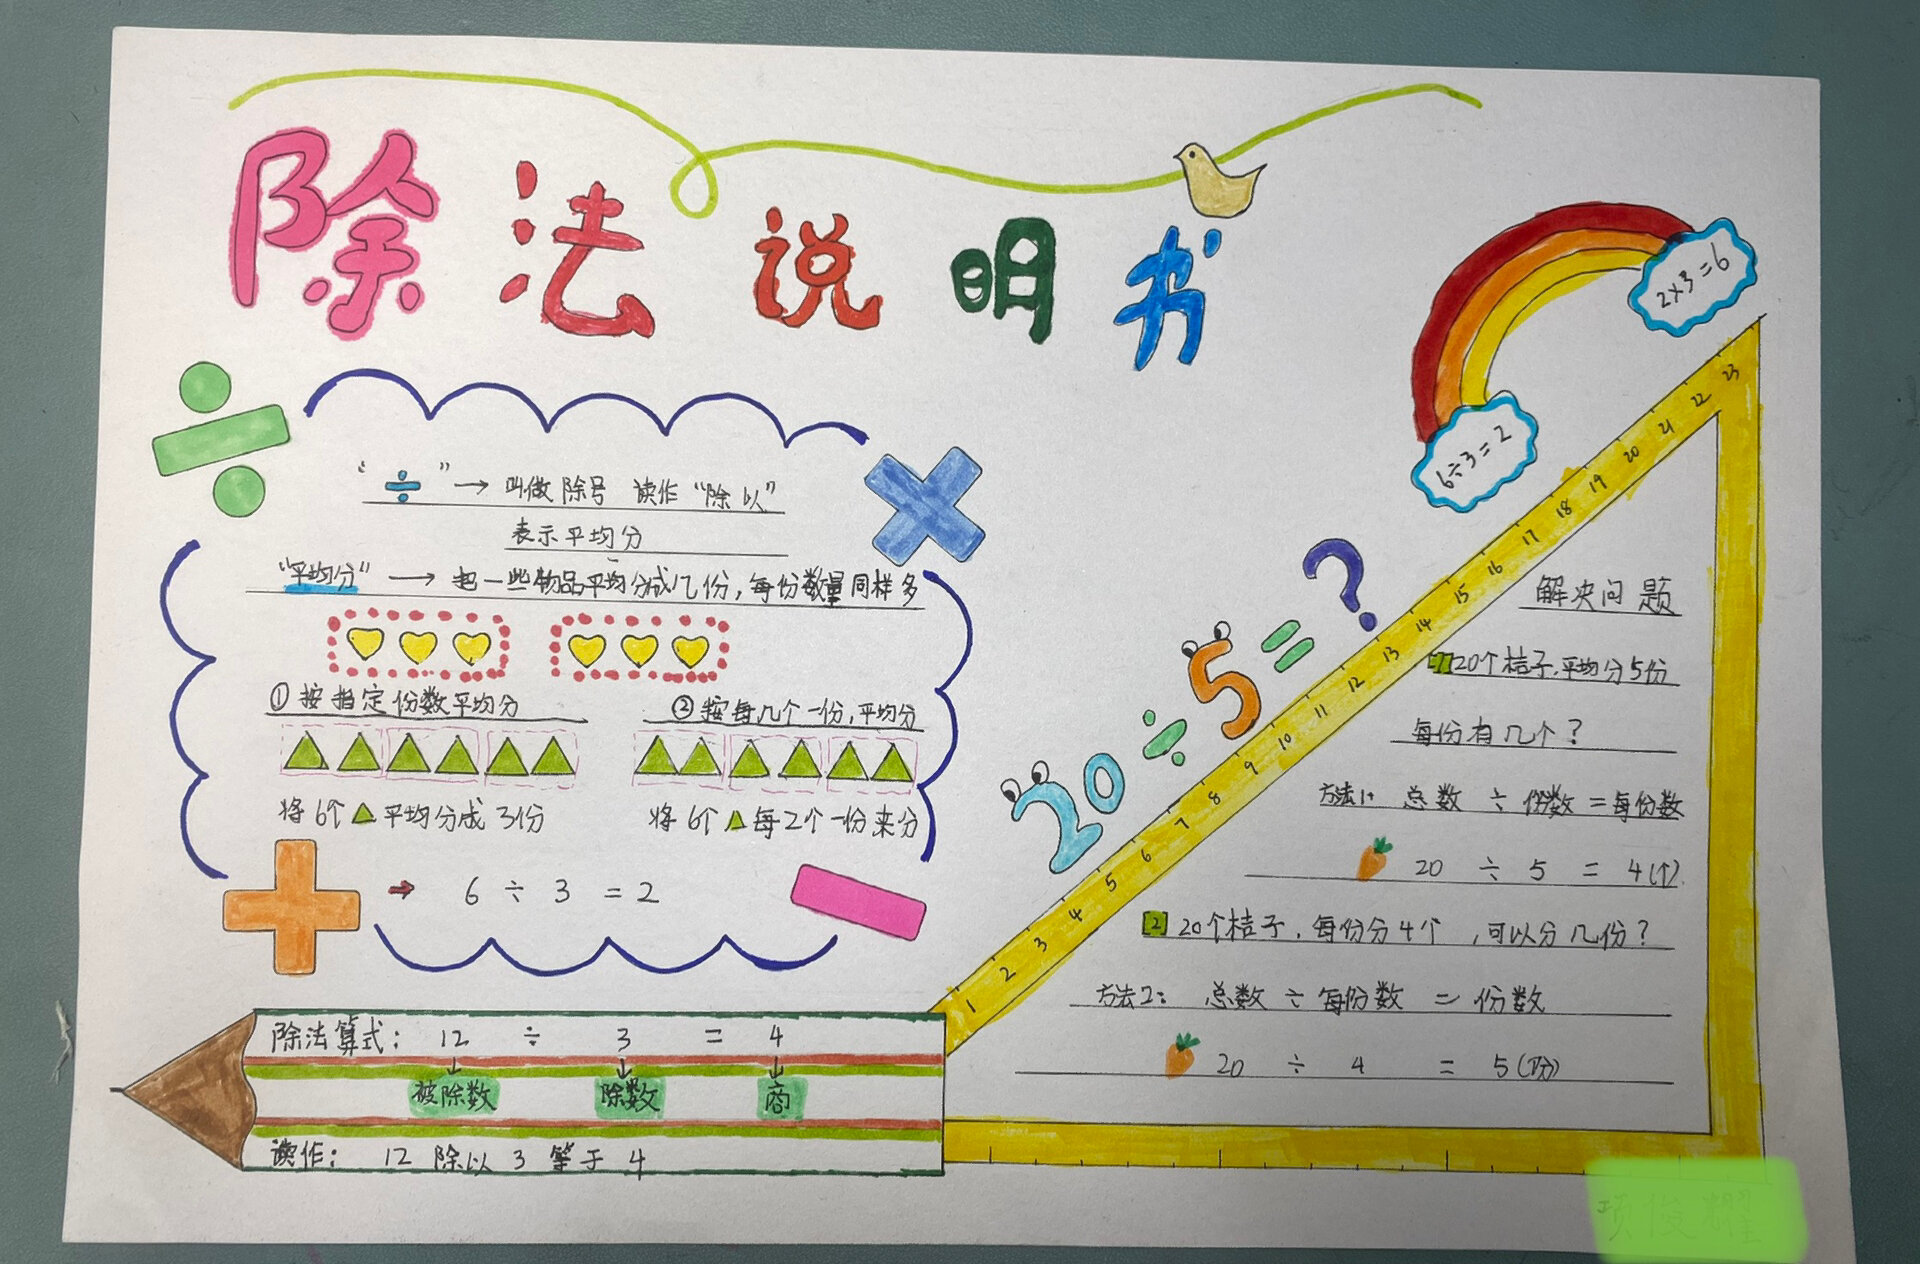 除法说明书
2×3=6
6÷3=2
“÷”→叫做除号 读作“除以”
表示平均分
“平均分”→把一些物品平均分成几份,每份数量同样多
①按指定份数平均分
②按每几个一份,平均分
将6个▲平均分成3份
将6个▲每2个一份来分
→ 6÷3=2
20÷5=?
1 2 3 4 5 6 7 8 9 10 11 12 13 14 15 16 17 18 19 20 21 22 23
解决问题
1 20个桔子,平均分5份
每份有几个?
方法1: 总数÷份数=每份数
20÷5=4(个)
2 20个桔子,每份分4个,可以分几份?
方法2: 总数÷每份数=份数
20÷4=5(份)
除法算式: 12÷3=4
被除数 除数 商
读作: 12除以3等于4